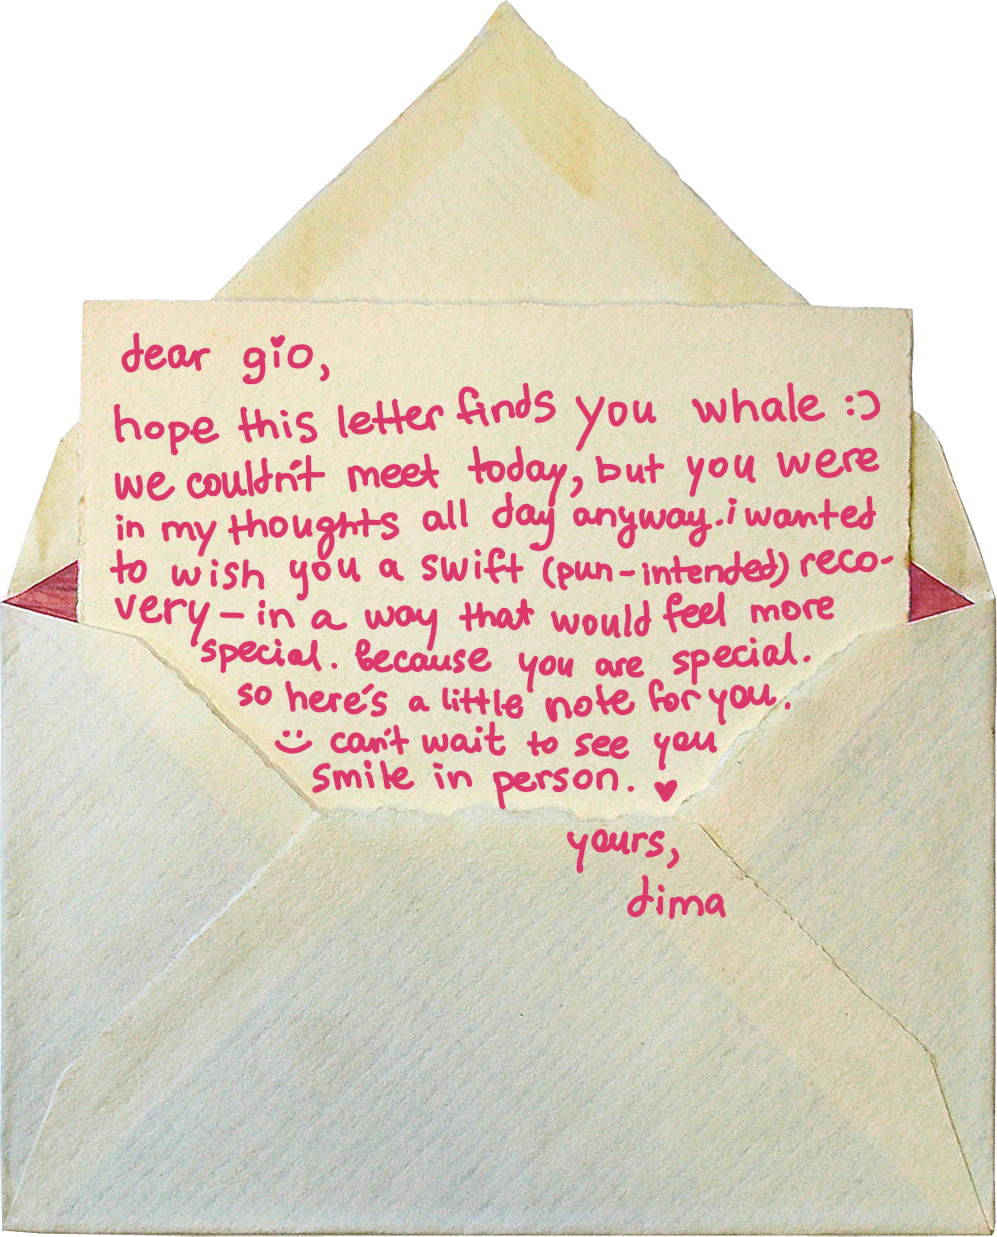 dear gio,
hope this letter finds you whale :)
we couldn't meet today, but you were
in my thoughts all day anyway. i wanted
to wish you a swift (pun-intended) reco-
very - in a way that would feel more
special. because you are special.
so here's a little note for you.
ü can't wait to see you
smile in person. ♥
yours,
dima